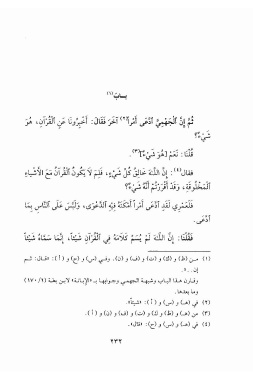 بـــابٌ(١)
ثُمَّ إِنَّ الْجَهْمِيَّ ادَّعَى أَمْرًا(٢) آخَرَ فَقَالَ: أَخْبِرُونَا عَنِ الْقُرْآنِ، هُوَ
شَيْءٌ؟
قُلْنَا: نَعَمْ [هُوَ شَيْءٌ](٣).
فقال(٤): إِنَّ اللَّهَ خَالِقُ كُلِّ شَيْءٍ، فَلِمَ لَا يَكُونُ الْقُرْآنُ مَعَ الْأَشْيَاءِ
الْمَخْلُوقَةِ، وَقَدْ أَقْرَرْتُمْ أَنَّهُ شَيْءٌ؟
فَلَعَمْرِي لَقَدِ ادَّعَى أَمْرًا أَمْكَنَهُ فِيهِ الدَّعْوَى، وَلَبَّسَ عَلَى النَّاسِ بِمَا
ادَّعَى.
فَقُلْنَا: إِنَّ اللَّهَ لَمْ يُسَمِّ كَلَامَهُ فِي الْقُرْآنِ شَيْئًا، إِنَّمَا سَمَّاهُ شَيْئًا
(١) من (ظ) و (ك) و (ت) و (ف) و (ن). وفي (س) و (ح) و (أ): «قال: ثم
إن...».
وقارن هذا الباب وشبهة الجهمي وجوابها بـ «الإبانة» لابن بطة (١٧٠/٢)
وما بعدها.
(٢) في (هـ) و (س) و (أ): «شيئًا».
(٣) من (هـ) و (ظ) و (ك) و (ت) و (ف) و (ن) و (أ).
(٤) في (هـ) و (س) و (ح): «قال».
٢٣٢